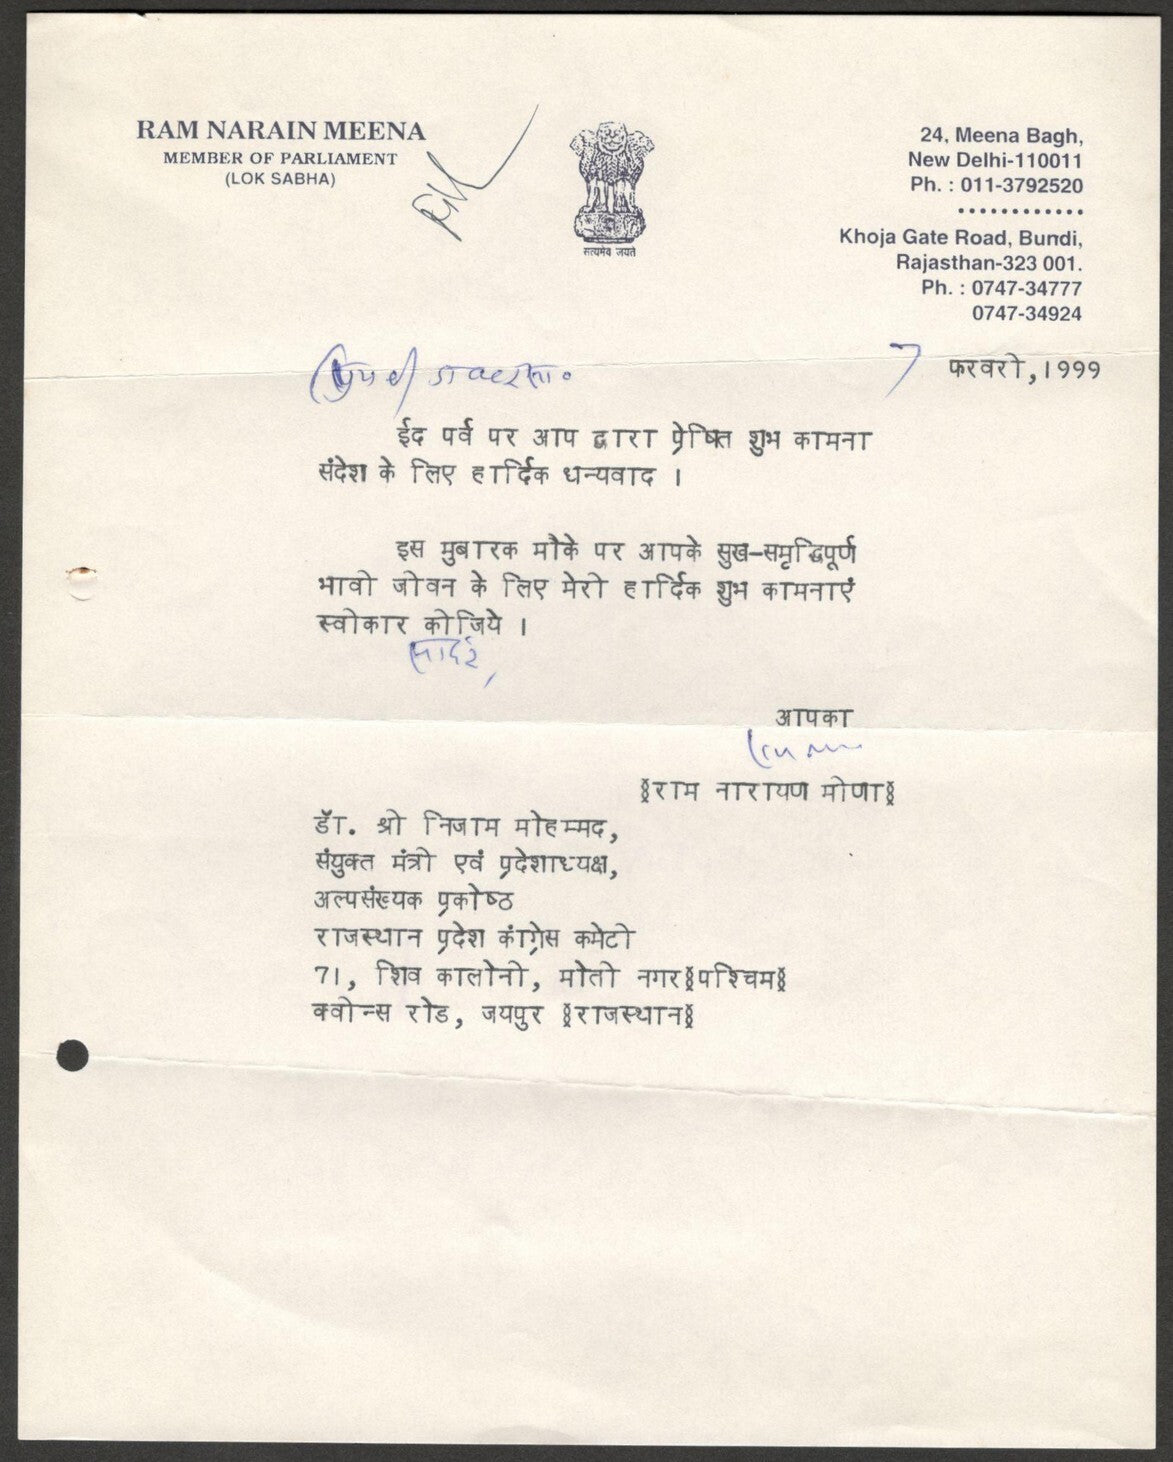 RAM NARAIN MEENA
MEMBER OF PARLIAMENT
(LOK SABHA)
सत्यमेव जयते
24, Meena Bagh,
New Delhi-110011
Ph. : 011-3792520
............
Khoja Gate Road, Bundi,
Rajasthan-323 001.
Ph. : 0747-34777
0747-34924
7 फरवरो, 1999
ईद पर्व पर आप द्वारा प्रेषित शुभ कामना
संदेश के लिए हार्दिक धन्यवाद ।
इस मुबारक मौके पर आपके सुख-समृद्धिपूर्ण
भावो जोवन के लिए मेरो हार्दिक शुभ कामनाएं
स्वोकार कोजिये ।
सादर,
आपका
§राम नारायण मोणा§
डॅा. श्रो निजाम मोहम्मद,
संयुक्त मंत्रो एवं प्रदेशाध्यक्ष,
अल्पसंख्यक प्रकोष्ठ
राजस्थान प्रदेश कांग्रेस कमेटो
71, शिव कालोनो, मोतो नगर§पश्चिम§
क्वोन्स रोड, जयपुर §राजस्थान§